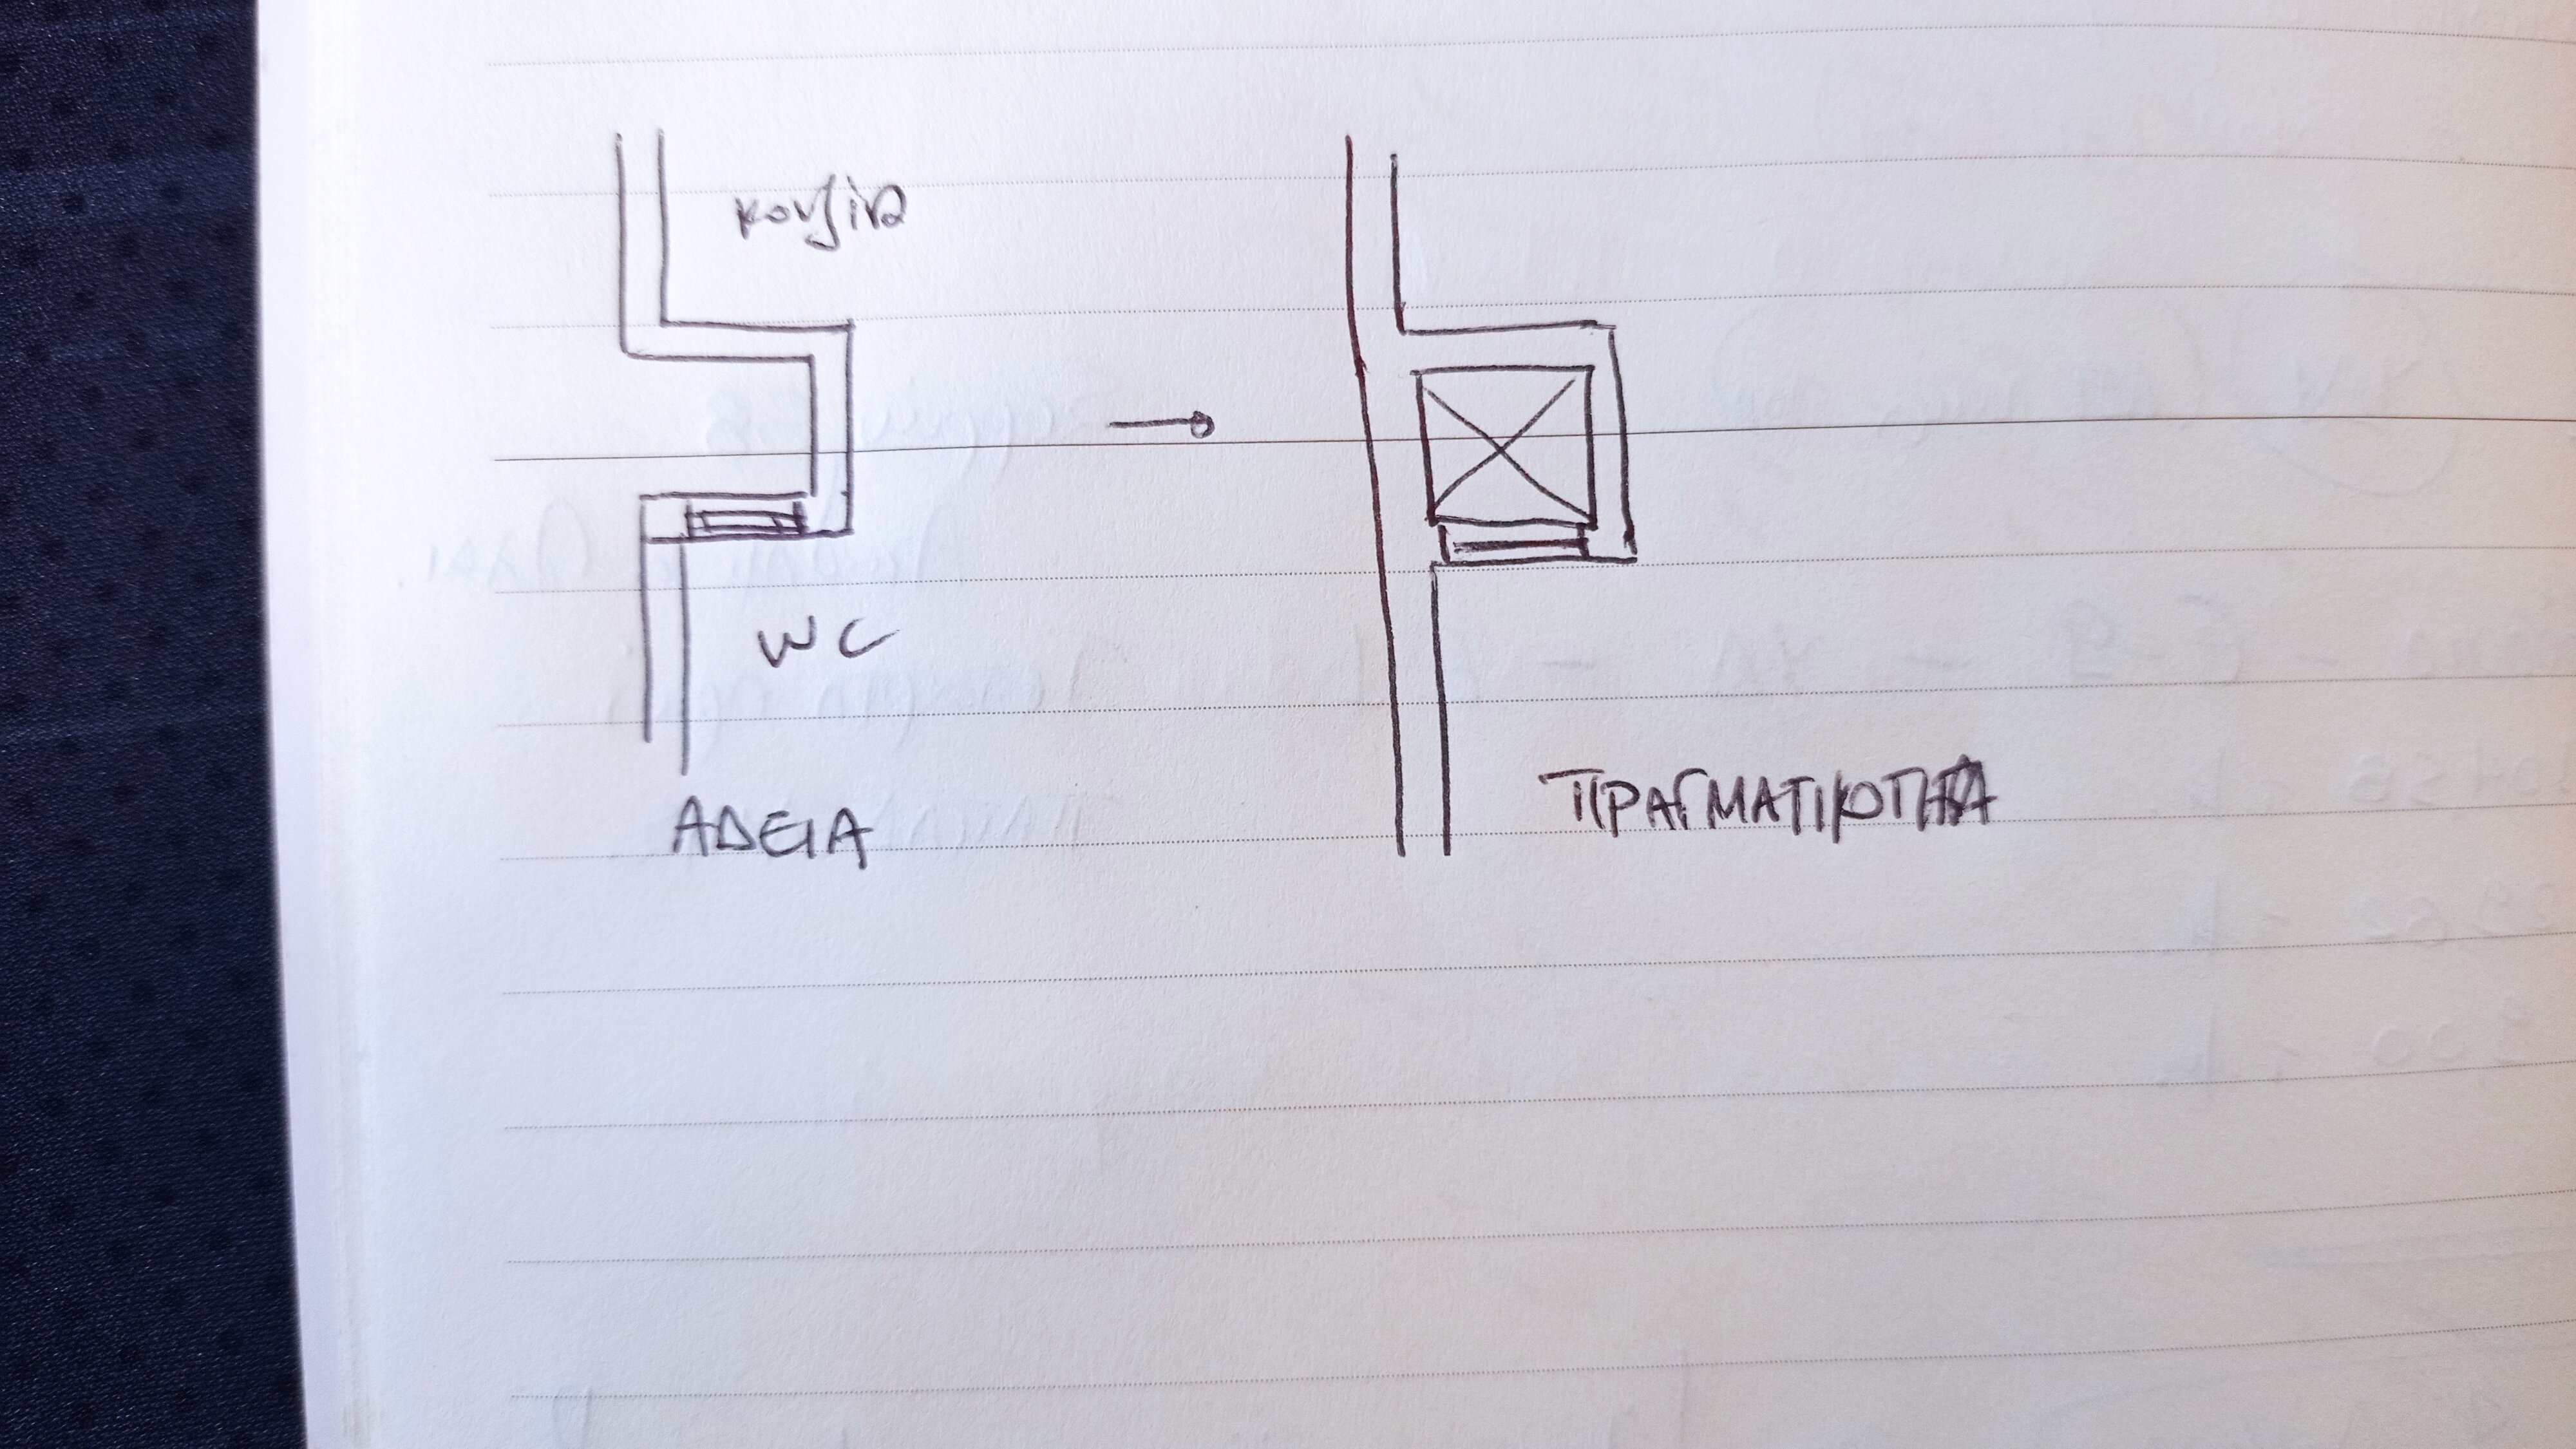 κουζίνα
WC
ΑΔΕΙΑ
ΠΡΑΓΜΑΤΙΚΟΤΗΤΑ